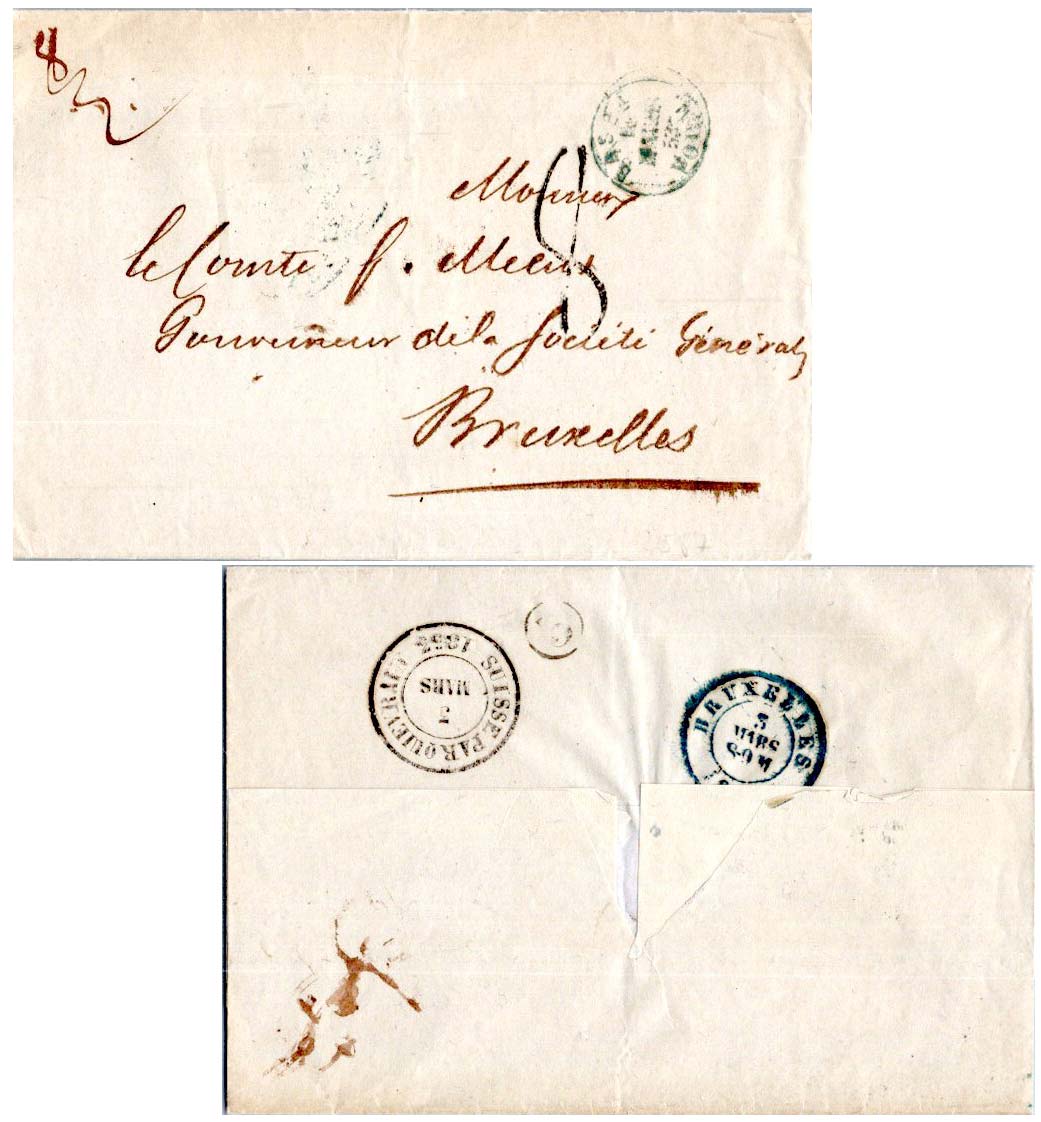 8
8
BASEL
MÆRZ
Monsieur
le Comte f. Meeus
Gouverneur de la Société Générale
Bruxelles
SUISSE PAR QUIEVRAIN
1853
3
MARS
BRUXELLES
3
MARS
8-9 M